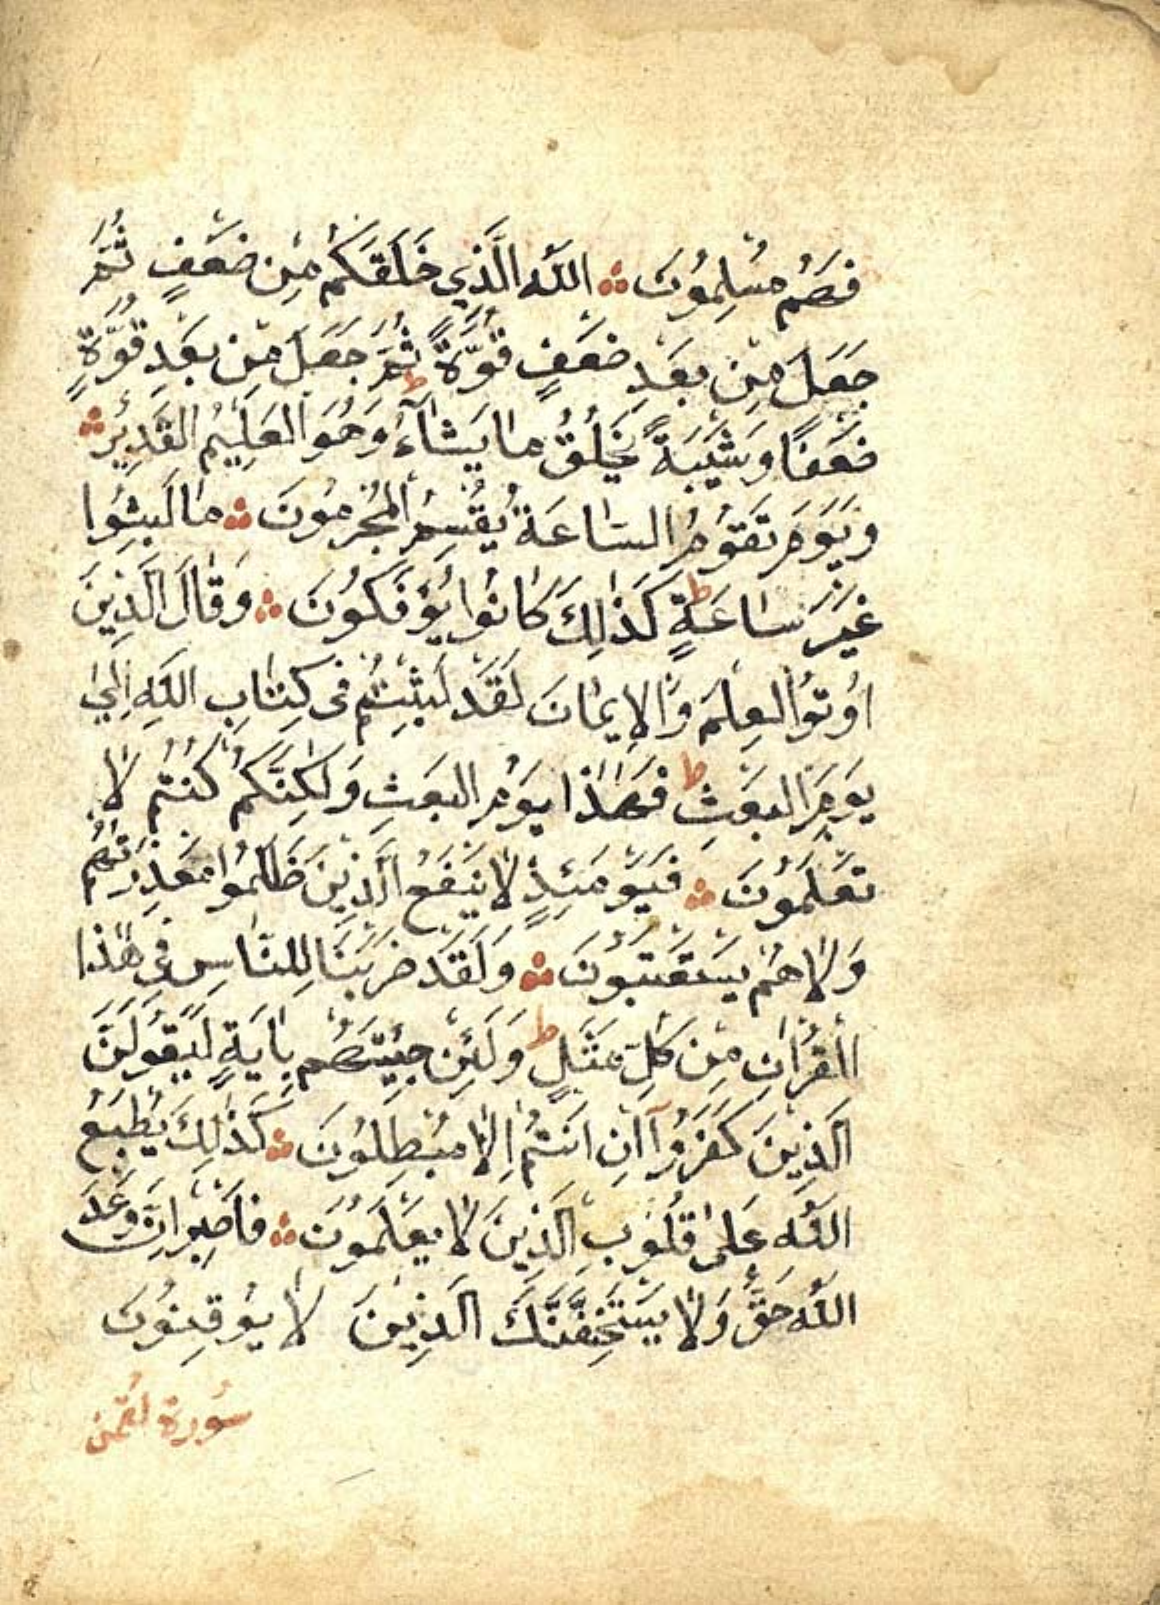 فَهُم مُسْلِمُونَ ۞ اللَّهُ الَّذِي خَلَقَكُم مِن ضَعْفٍ ثُمَّ
جَعَلَ مِن بَعْدِ ضَعْفٍ قُوَّةً ثُمَّ جَعَلَ مِن بَعْدِ قُوَّةٍ
ضَعْفًا وَشَيْبَةً ط يَخْلُقُ مَا يَشَآءُ وَهُوَ الْعَلِيمُ الْقَدِيرُ ۞
وَيَوْمَ تَقُومُ السَّاعَةُ يُقْسِمُ الْمُجْرِمُونَ ۞ مَا لَبِثُوا
غَيْرَ سَاعَةٍ ط كَذٰلِكَ كَانُوا يُؤْفَكُونَ ۞ وَقَالَ الَّذِينَ
اُوتُوا الْعِلْمَ وَالْإِيمَانَ لَقَدْ لَبِثْتُم فِي كِتَابِ اللَّهِ إِلٰى
يَوْمِ الْبَعْثِ ط فَهٰذَا يَوْمُ الْبَعْثِ وَلٰكِنَّكُم كُنتُم لَا
تَعْلَمُونَ ۞ فَيَوْمَئِذٍ لَا يَنفَعُ الَّذِينَ ظَلَمُوا مَعْذِرَتُهُم
وَلَا هُم يُسْتَعْتَبُونَ ۞ وَلَقَدْ ضَرَبْنَا لِلنَّاسِ فِي هٰذَا
الْقُرْاٰنِ مِن كُلِّ مَثَلٍ ط وَلَئِن جِئْتَهُم بِاٰيَةٍ لَيَقُولَنَّ
الَّذِينَ كَفَرُوآ اِنْ اَنتُم اِلَّا مُبْطِلُونَ ۞ كَذٰلِكَ يَطْبَعُ
اللَّهُ عَلٰى قُلُوبِ الَّذِينَ لَا يَعْلَمُونَ ۞ فَاصْبِرْ اِنَّ وَعْدَ
اللَّهِ حَقٌّ وَلَا يَسْتَخِفَّنَّكَ الَّذِينَ لَا يُوقِنُونَ
سُورَة لُقْمٰن